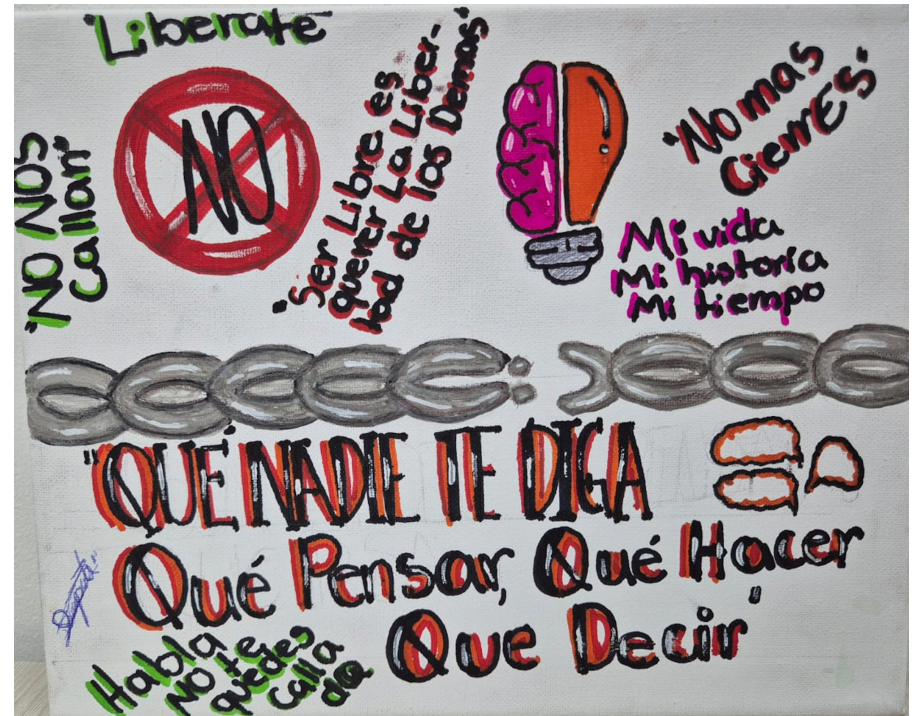 "Liberate"
NO
"NO NOS
Callan"
"Ser Libre es
querer La Liber-
tad de los Demas"
"No mas
cierres"
Mi vida
Mi historia
Mi tiempo
"QUE NADIE TE DIGA
Qué Pensar, Qué Hacer
Que Decir"
Habla
NO te
quedes
calla
da